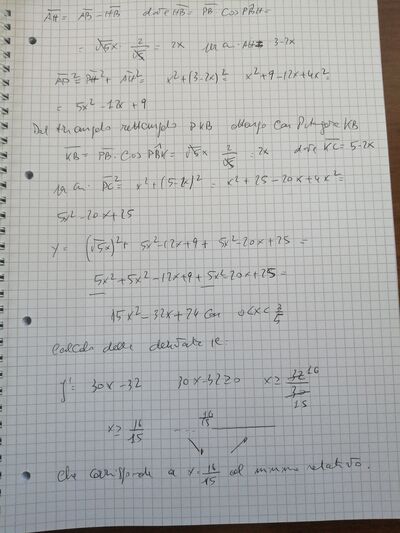 AH = AB - HB dove HB = PB cos PBH =
= √5x · 2/√5 = 2x AH = 3-2x
AP² = PH² + AH² = x² + (3-2x)² = x² + 9 - 12x + 4x² =
= 5x² - 12x + 9
Dal triangolo rettangolo PKB ottengo con Pitagora KB
KB = PB · cos PBK = √5x 2/√5 = 2x dove KC = 5-2x
PC² = x² + (5-2x)² = x² + 25 - 20x + 4x² =
5x² - 20x + 25
y = (√5x)² + 5x² - 12x + 9 + 5x² - 20x + 25 =
5x² + 5x² - 12x + 9 + 5x² - 20x + 25 =
15x² - 32x + 34 con 0<x<3/5
Calcolo della derivata
y' = 30x - 32 30x - 32 ≥ 0 x ≥ 32/30 16/15
x ≥ 16/15 16/15
che corrisponde a x = 16/15 al minimo relativo.